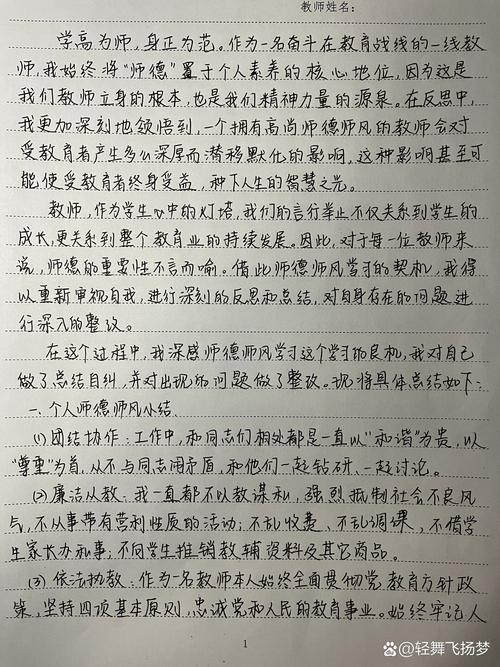 教师姓名：
学高为师，身正为范。作为一名奋斗在教育战线的一线教
师，我始终将“师德”置于个人素养的核心地位，因为这是
我们教师立身的根本，也是我们精神力量的源泉。在反思中，
我更加深刻地领悟到，一个拥有高尚师德师风的教师会对
受教育者产生多么深厚而潜移默化的影响，这种影响甚至可
能使受教育者终身受益，种下人生的智慧之光。
教师，作为学生心中的灯塔，我们的言行举止不仅关系到学生的
成长，更关系到整个教育业的持续发展。因此，对于每一位教师来
说，师德的重要性不言而喻。借此师德师风学习的契机，我得
以重新审视自我，进行深刻的反思和总结，对自身存在的问题进
行深入的整改。
在这个过程中，我深感师德师风学习这个学习的良机，我对自己
做了总结自纠，并对出现的问题做了整改。现将具体总结如下：
一、个人师德师风小结
(1) 团结协作：工作中，和同志们相处都是一直以“和谐”为贵，以
“尊重”为首，从不与同志闹矛盾，和他们一起钻研、一起讨论。
(2) 廉洁从教：我一直都不以教谋私，强烈抵制社会不良风
气，不从事带有营利性质的活动；不乱收费、不乱调课，不借学
生家长办私事；不向学生推销教辅资料及其它商品。
(3) 依法执教：作为一名教师本人始终全面贯彻党教育方针政
策，坚持四项基本原则，忠诚党和人民的教育事业。始终牢记人
1
轻舞飞扬梦